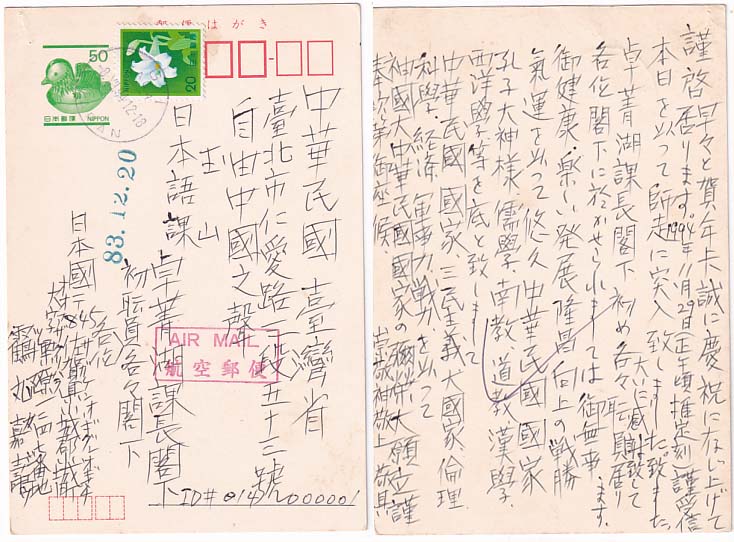 郵便はがき
50
日本郵便 NIPPON
NIPPON
20
83.12.20
AIR MAIL
航空郵便
中華民國 臺灣省
臺北市仁愛路三段五十三號
自由中國之聲
日本語課
卓菁湖課長閣下
初 職員各々閣下
各位
日本國〒845
佐賀県小城郡
ID#0145000001
謹啓 早々と賀年卡誠に慶祝に存じ上げて
居ります。1994年11月29日(正午頃推定刻)謹受信
本日を以って師走に突入致しました。
卓菁湖課長閣下 初め各々職員
各位閣下に於かせられましては御無事
御健康・楽しい発展隆昌向上の戦勝
氣運を以って悠久 中華民國 國家
孔子大神様 儒學 南教 道教 漢學・
西洋學等を底と致しまして
中華民國 國家 三民主義大國家 倫理・
科學・経済 軍事力戦力を以って
神國大中華民國國家の彌栄大願立謹